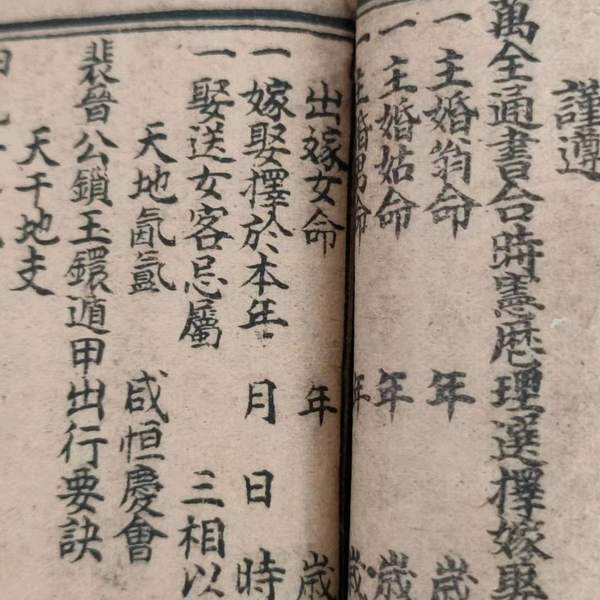 謹遵
萬全通書合時憲曆理選擇嫁娶
一主婚翁命 年 歲
一主婚姑命 年 歲
一主婚男命 年 歲
出嫁女命 年 歲
一嫁娶擇於本年 月 日 時
一娶送女客忌屬 三相以
天地氤氳 咸恒慶會
裴晉公鎖玉鐶遁甲出行要訣
天干地支